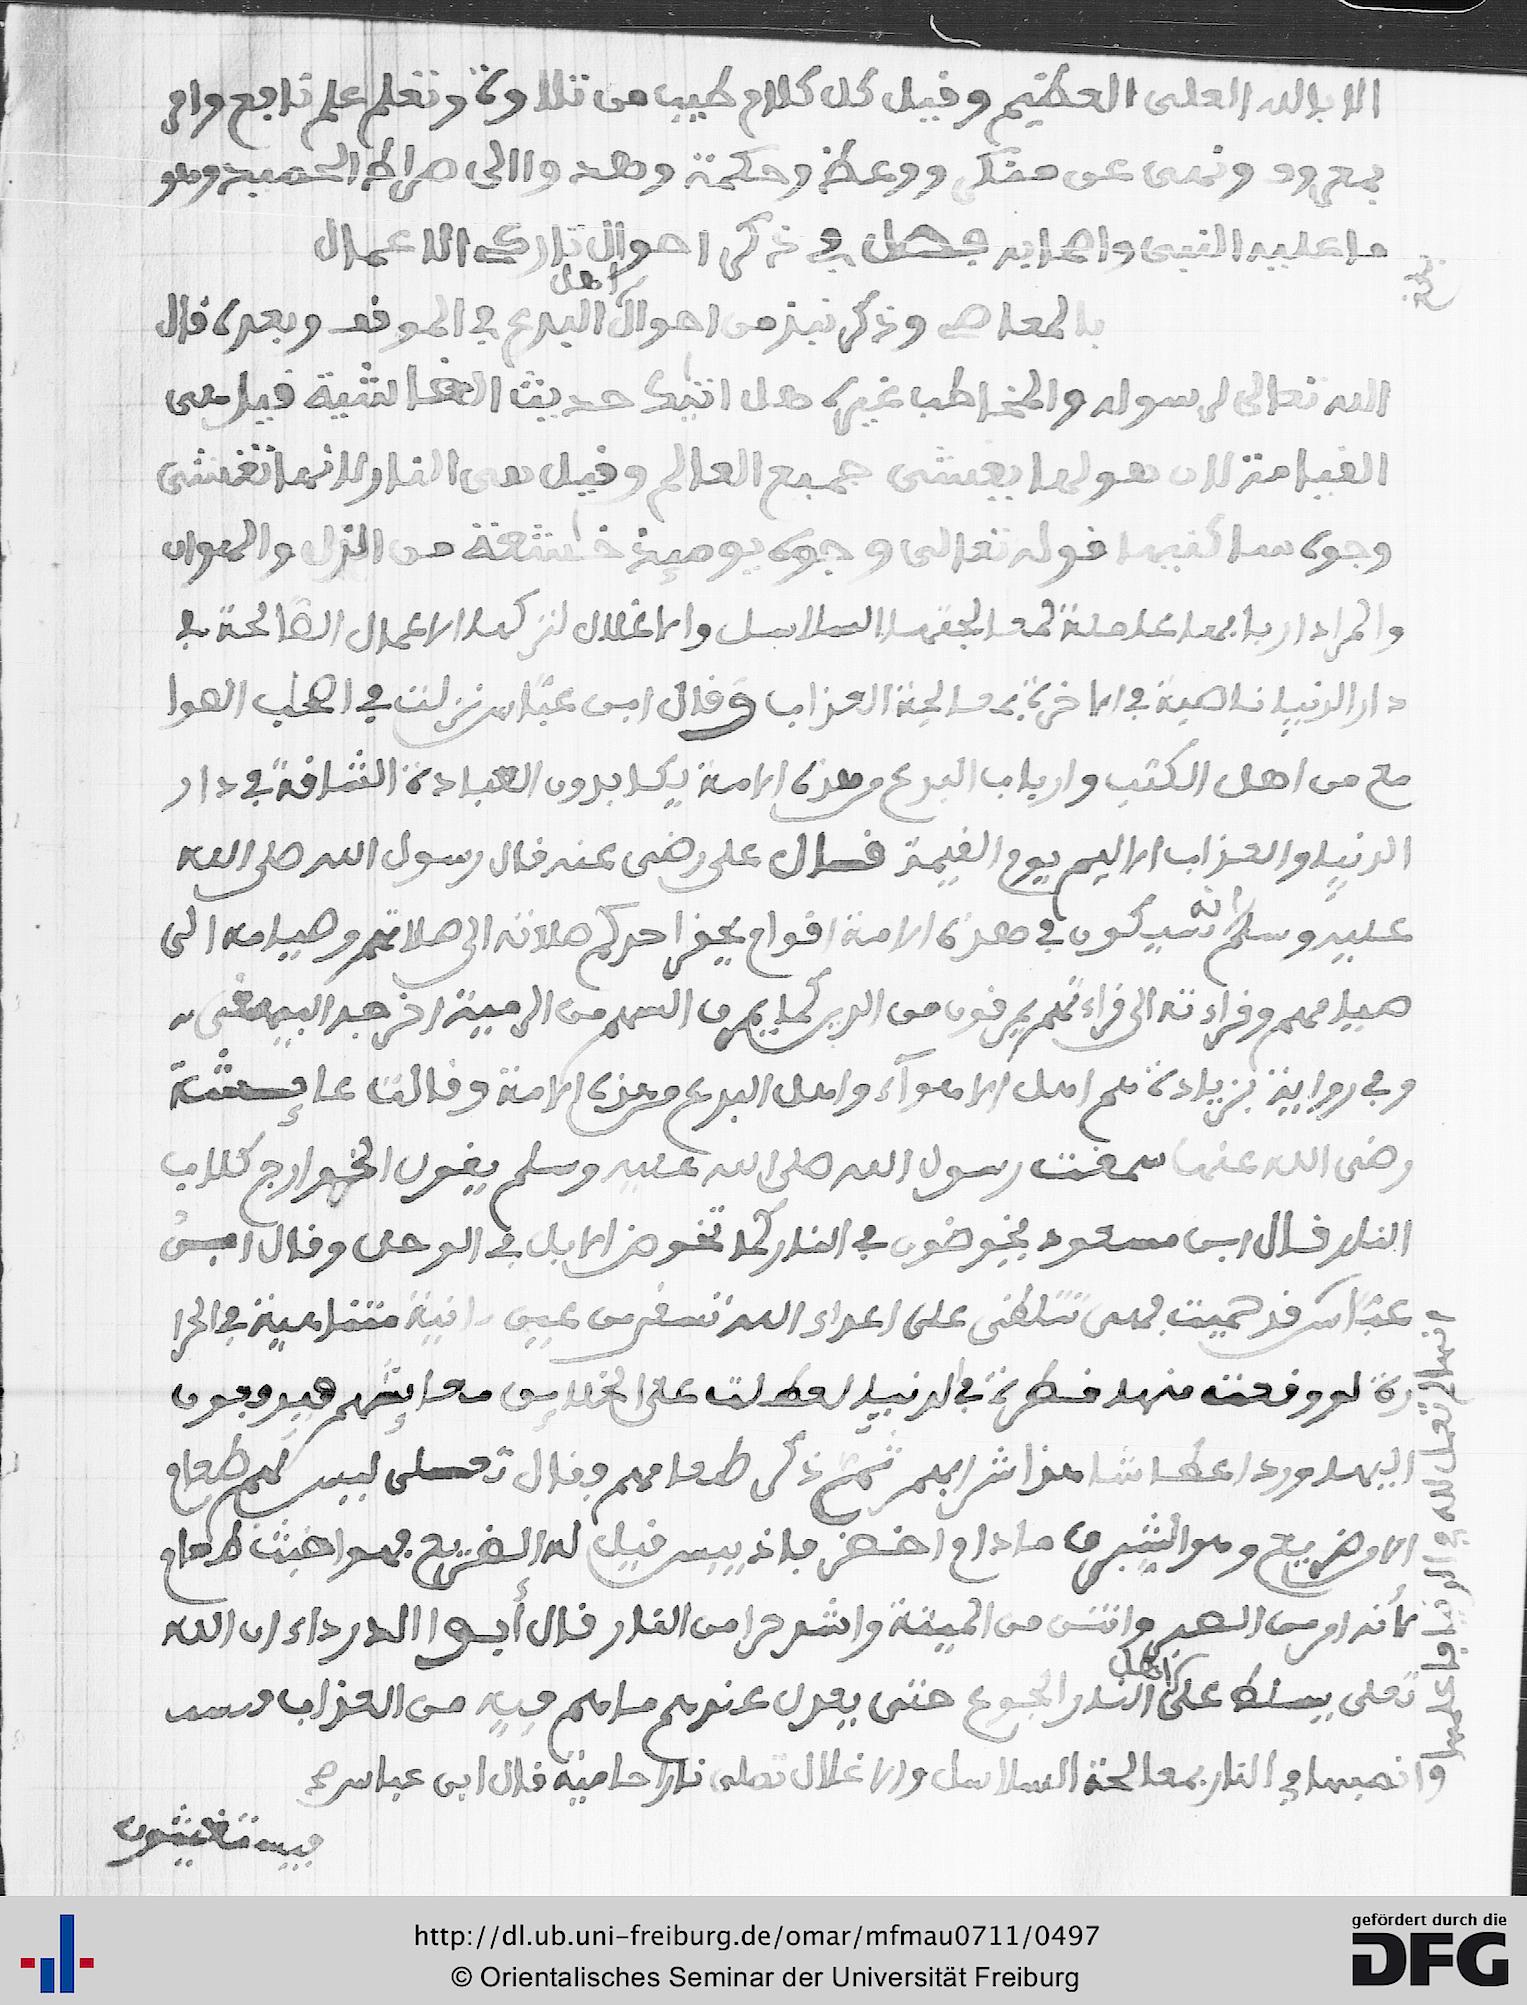 الا بالله العلى العظيم وفيل كل كلام طيب من تلاوة وتعلم علم نافع وامر
بمعروف ونهى عن منكر ووعظ وحكمة وهد واالى صراط الحميد وهو
ما عليه النبى واصحابه فصل في ذكر احوال تارك الاعمال
بالمعاصى وذكر نبذ من احوال اهل البدع في الموقف وبعده قال
الله تعالى لرسوله والمخاطب غيره هل اتيك حديث الغاشية فيل هى
القيامة لان هولها يغشى جميع العالم وفيل هى النار لانها تغشى
وجوه ساكنيها قوله تعالى وجوه يوميذ خاشعة من الذل والهوان
والمراد اربابها عاملة لمعالجتها السلاسل والاغلال لتركها الاعمال الصالحة في
دار الدنيا ناصبة في الاخرة بمعالجة العذاب وقال ابن عباس نزلت في اصحاب الهوا
مع من اهل الكتب وارباب البدع من هذه الامة يكابدون العبادة الشاقة في دار
الدنيا والعذاب الاليم يوم القيمة قال على رضى عنه قال رسول الله صلى الله
عليه وسلم انه سيكون في هذه الامة اقوام يحقر احدكم صلاته الى صلاتهم وصيامه الى
صيامهم وقراءته الى قراءتهم يمرقون من الدين كما يمرق السهم من الرمية اخرجه البيهقى
وفي رواية بزيادة هم اهل الاهوآء واهل البدع من هذه الامة وقالت عايشة
رضى الله عنها سمعت رسول الله صلى الله عليه وسلم يقول الخوارج كلاب
النار قال ابن مسعود يخوضون في النار كما تخوض الابل في الوحل وقال ابن
عباس قد حميت فهى تتلظى على اعداء الله تسقى من عين انية متناهية في الحرا
رة لو وقعت منها قطرة في الدنيا لعطلت على الخلايق معايشهم فيدفعون
اليها وردا عطاشا هذا شرابهم ثم ذكر طعامهم وقال تعلى ليس لهم طعام
الا من ضريع وهو الشبرق ما دام اخضر فاذ يبس فيل له الضريع فهو اخبث طعام
كأنه امر من الصبر وانتن من الميتة واشد حرا من النار قال أبوا الدرداء ان الله
تعلى يسلط على اهل النار الجوع حتى يعدل عندهم ما هم فيه من العذاب
وانصبها في النار بمعالجة السلاسل والاغلال تصلى نارا حامية قال ابن عباس
فيستغيثون
انها لم تعمل لله في الدنيا فاعملها
http://dl.ub.uni-freiburg.de/omar/mfmau0711/0497
© Orientalisches Seminar der Universität Freiburg
gefördert durch die
DFG